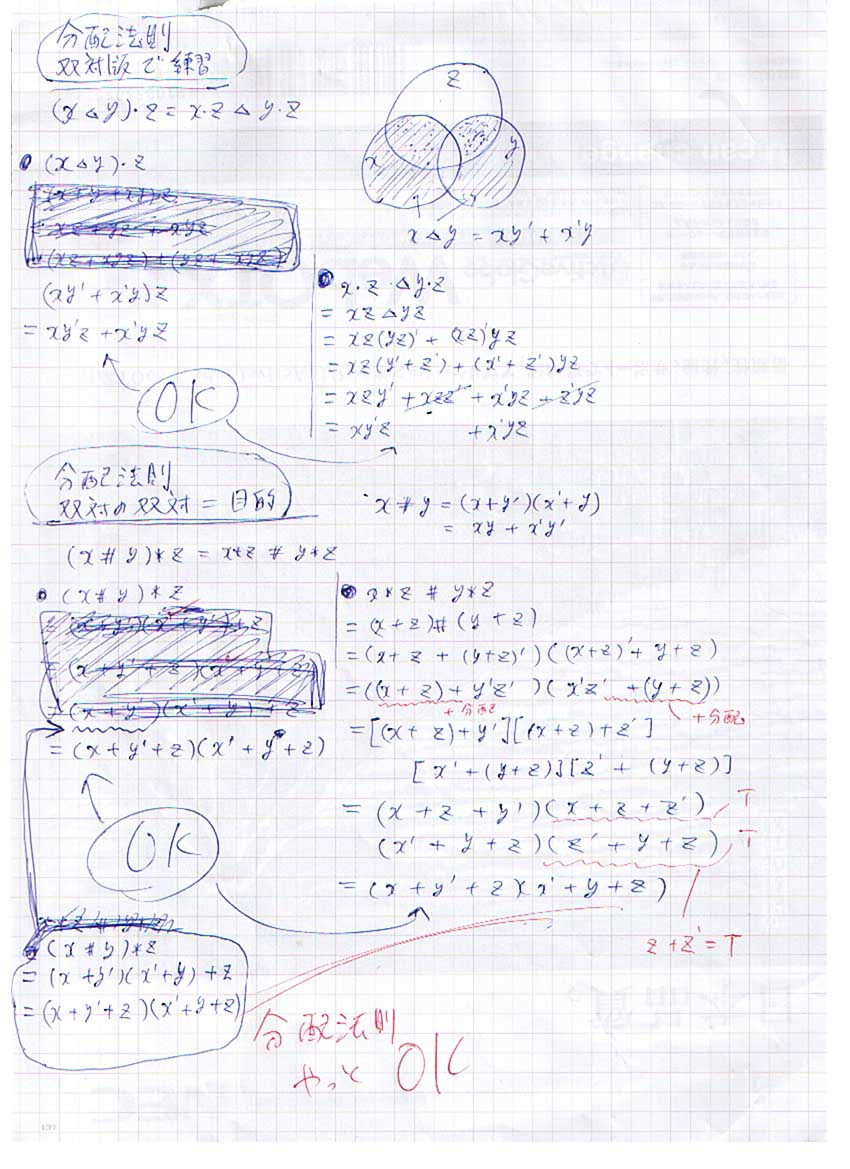 分配法則
双対版で練習
(x △ y)・z = x・z △ y・z
z
x
y
x △ y = xy' + x'y
(x △ y)・z
(xy' + x'y)z
= xy'z + x'yz
OK
x・z △ y・z
= xz △ yz
= xz(yz)' + (xz)'yz
= xz(y' + z') + (x' + z')yz
= xzy' + xzz' + x'yz + z'yz
= xy'z + x'yz
分配法則
双対の双対 = 目的
x # y = (x+y')(x'+y)
= xy + x'y'
(x # y)*z = x*z # y*z
(x # y)*z
= (x+y')(x'+y')+z
= (x+y'+z)(x'+y+z)
= (x+y')(x'+y)+z
= (x+y'+z)(x'+y+z)
OK
x*z # y*z
= (x+z)#(y+z)
= (x+z + (y+z)')((x+z)' + y+z)
= ((x+z) + y'z')(x'z' + (y+z))
+分配
+分配
= [(x+z)+y'][(x+z)+z']
[x'+(y+z)][z'+(y+z)]
= (x+z+y')(x+z+z') T
(x'+y+z)(z'+y+z) T
= (x+y'+z)(x'+y+z)
z+z'=T
(x # y)*z
= (x+y')(x'+y)+z
= (x+y'+z)(x'+y+z)
分配法則
やっと OK